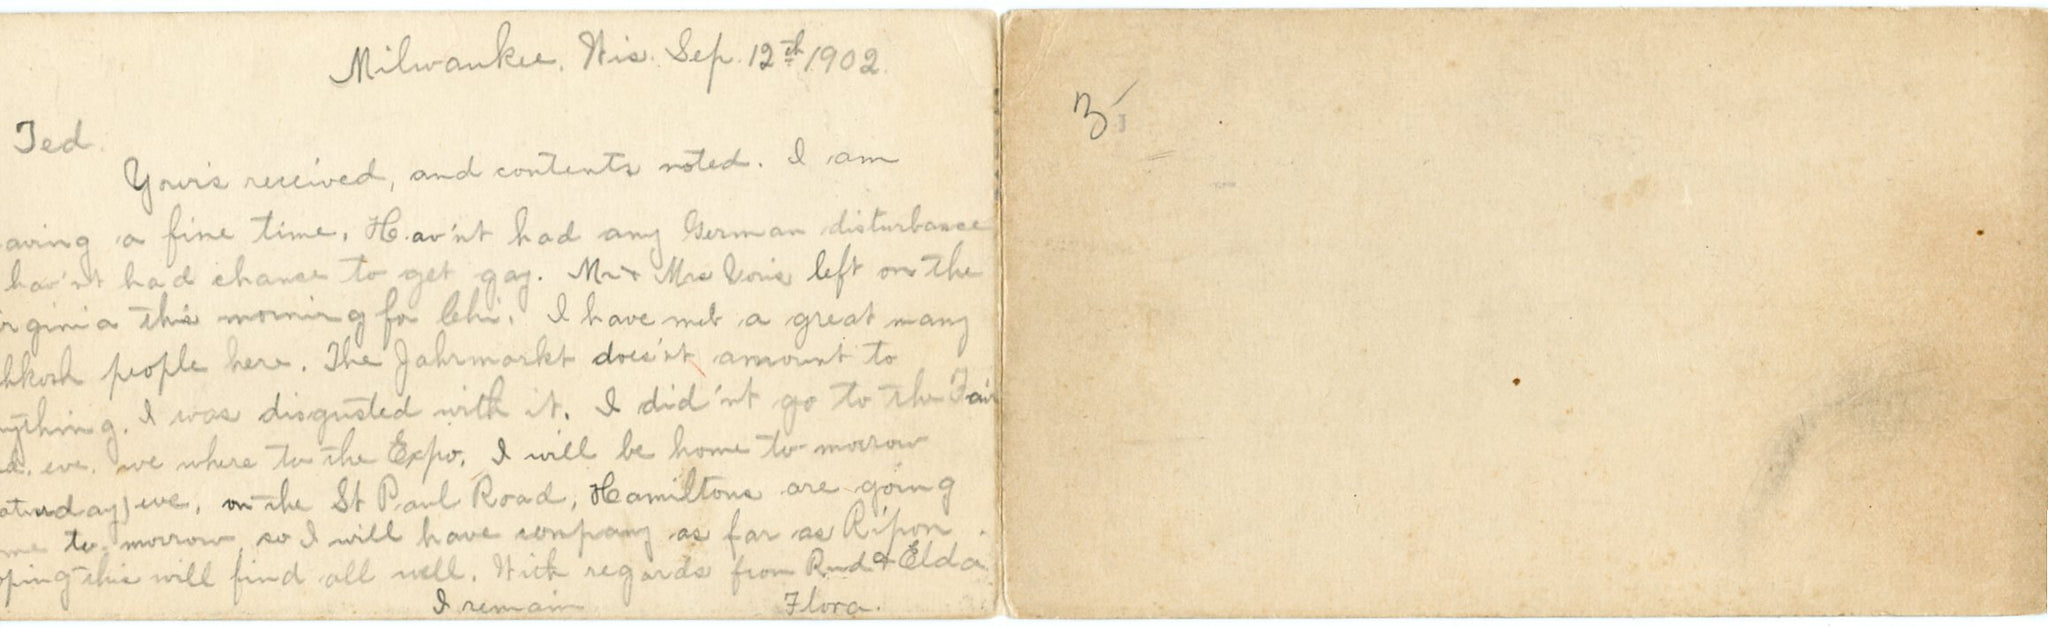 Milwaukee, Wis. Sep. 12th 1902.
Ted.
Your's received, and contents noted. I am
aving a fine time. Hav'nt had any German disturbance
hav'nt had chance to get gay. Mr + Mrs left on the
irginia this morning for Chi. I have met a great many
hkosh people here. The Jahrmarkt does'nt amount to
nything. I was disgusted with it. I did'nt go to the Fair
eve. we where to the Expo. I will be home to-morrow
aturday) eve, on the St Paul Road, Hamiltons are going
me to-morrow, so I will have company as far as Ripon.
oping this will find all well. With regards from Rud & Elda
I remain Flora.